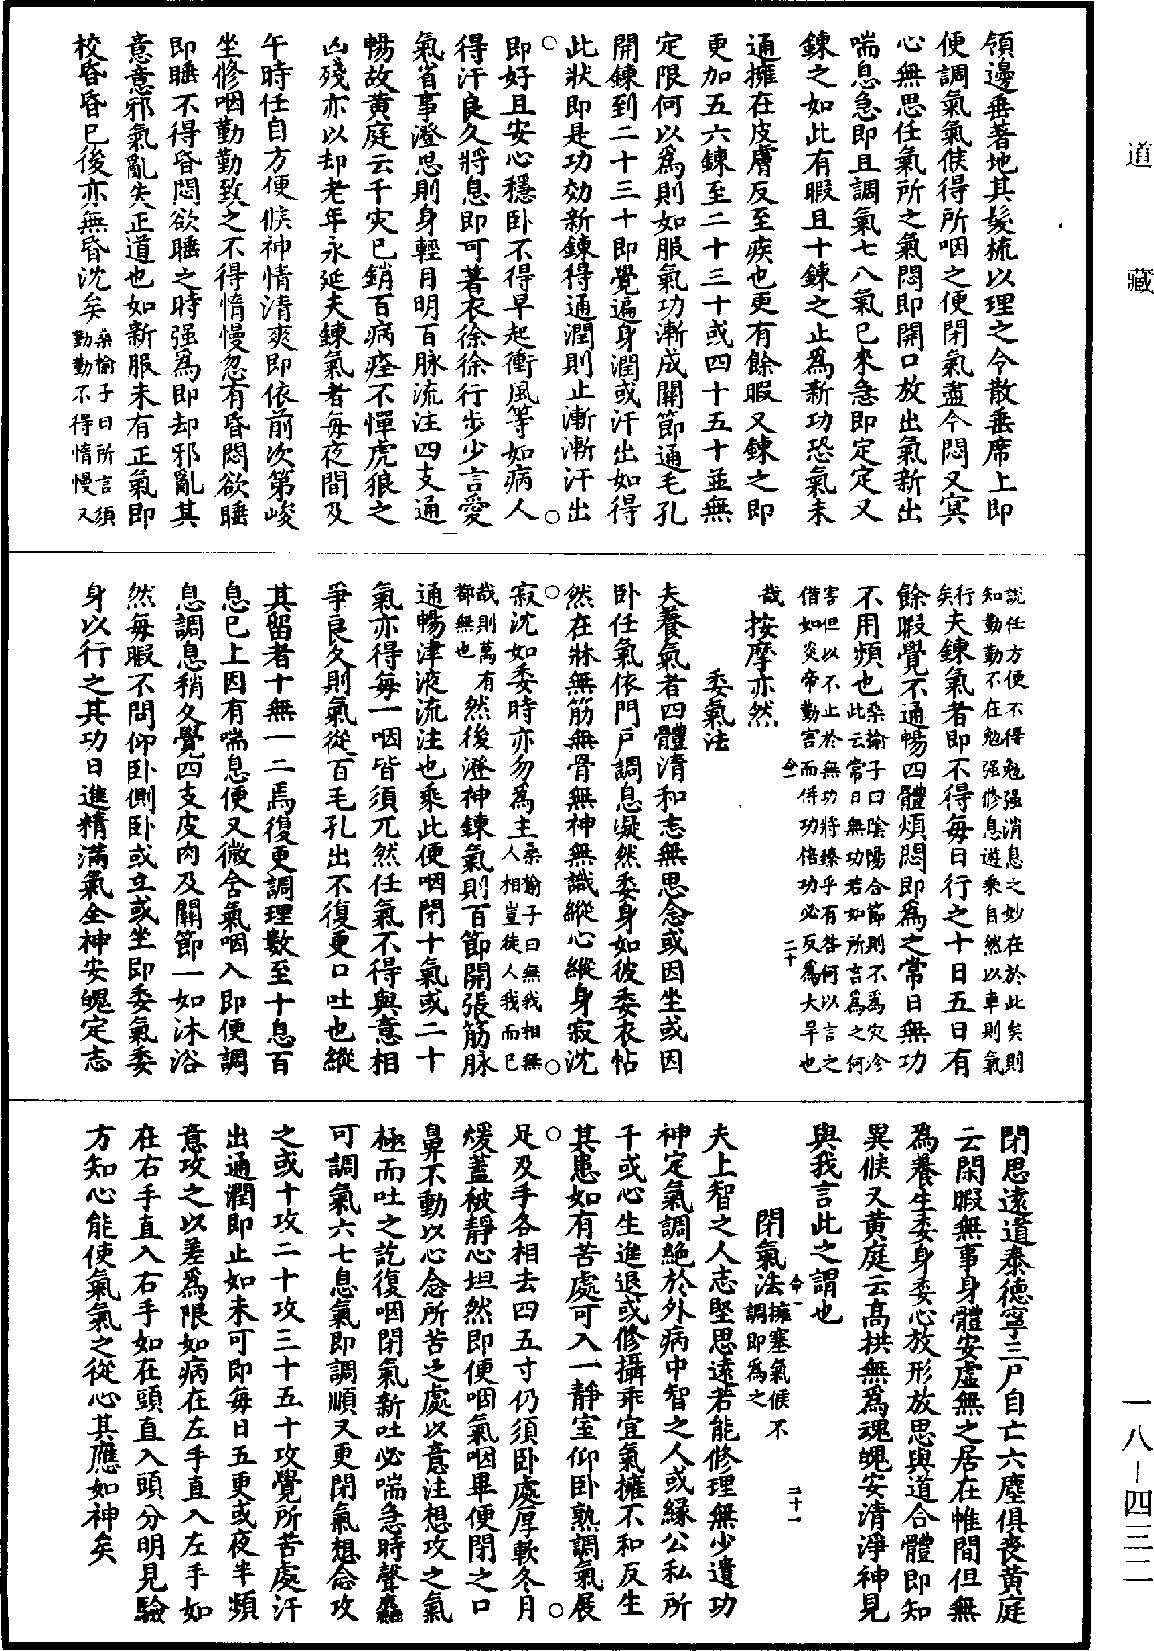 道藏
領邊垂著地其髮梳以理之令散垂席上即
便調氣氣候得所咽之便閉氣盡令悶又冥
心無思任氣所之氣悶即開口放出氣新出
喘息急即且調氣七八氣已來急即定定又
鍊之如此有暇且十鍊之止為新功恐氣未
通擁在皮膚反至疾也更有餘暇又鍊之即
更加五六鍊至二十三十或四十五十並無
定限何以為則如服氣功漸成關節通毛孔
開鍊到二十三十即覺遍身潤或汗出如得
此狀即是功効新鍊得通潤則止漸漸汗出
即好且安心穩卧不得早起衝風等如病人
得汗良久將息即可著衣徐徐行步少言愛
氣省事澄思則身輕目明百脉流注四支通
暢故黃庭云千灾已銷百病痊不憚虎狼之
凶殘亦以却老年永延夫鍊氣者每夜間及
午時任自方便候神情清爽即依前次第峻
坐修咽勤勤致之不得惰慢忽有昏悶欲睡
即睡不得昏悶欲睡之時强為即却邪亂其
意意邪氣亂失正道也如新服未有正氣即
校昏昏已後亦無昏沈矣桑榆子曰所言須
勤勤不得惰慢又
說任方便不得勉强消息之妙在於此矣則
知勤勤不在勉强修息遊乘自然以車則氣
行
矣夫鍊氣者即不得每日行之十日五日有
餘暇覺不通暢四體煩悶即為之常日無功
不用頻也桑榆子曰陰陽合節則不為灾沴
此云常日無功若如所言為之何
害但以不止於無功將臻乎有咎何以言之
借如炎帝勤宫而併功倍功必反為大旱也
哉按摩亦然
委氣法
夫養氣者四體清和志無思念或因坐或因
卧任氣依門戶調息凝然委身如彼委衣帖
然在牀無筋無骨無神無識縱心縱身寂沈
寂沈如委時亦勿為主桑榆子曰無我相無
人相豈徒人我而已
哉則萬有
都無也然後澄神鍊氣則百節開張筋脉
通暢津液流注也乘此便咽閉十氣或二十
氣亦得每一咽皆須兀然任氣不得與意相
爭良久則氣從百毛孔出不復更口吐也縱
其留者十無一二焉復更調理數至十息百
息已上因有喘息便又微含氣咽入即便調
息調息稍久覺四支皮肉及關節一如沐浴
然每暇不問仰卧側卧或立或坐即委氣委
身以行之其功日進精滿氣全神安魄定志
閉思遠道泰德寧三尸自亡六塵俱喪黃庭
云閑暇無事身體安虛無之居在帷間但無
為養生委身委心放形放思與道合體即知
異候又黃庭云高拱無為魂魄安清淨神見
與我言此之謂也
閉氣法擁塞氣候不
調即為之
夫上智之人志堅思遠若能修理無少遺功
神定氣調絕於外病中智之人或緣公私所
干或心生進退或修攝乖宜氣擁不和反生
其患如有苦處可入一靜室仰卧熟調氣展
足及手各相去四五寸仍須卧處厚軟冬月
煖蓋被靜心坦然即便咽氣咽畢便閉之口
鼻不動以心念所苦之處以意注想攻之氣
極而吐之訖復咽閉氣新吐必喘急時聲麤
可調氣六七息氣即調順又更閉氣想念攻
之或十攻二十攻三十五十攻覺所苦處汗
出通潤即止如未可即每日五更或夜半頻
意攻之以差為限如病在左手直入左手如
在右手直入右手如在頭直入頭分明見驗
方知心能使氣氣之從心其應如神矣
一八-四三二